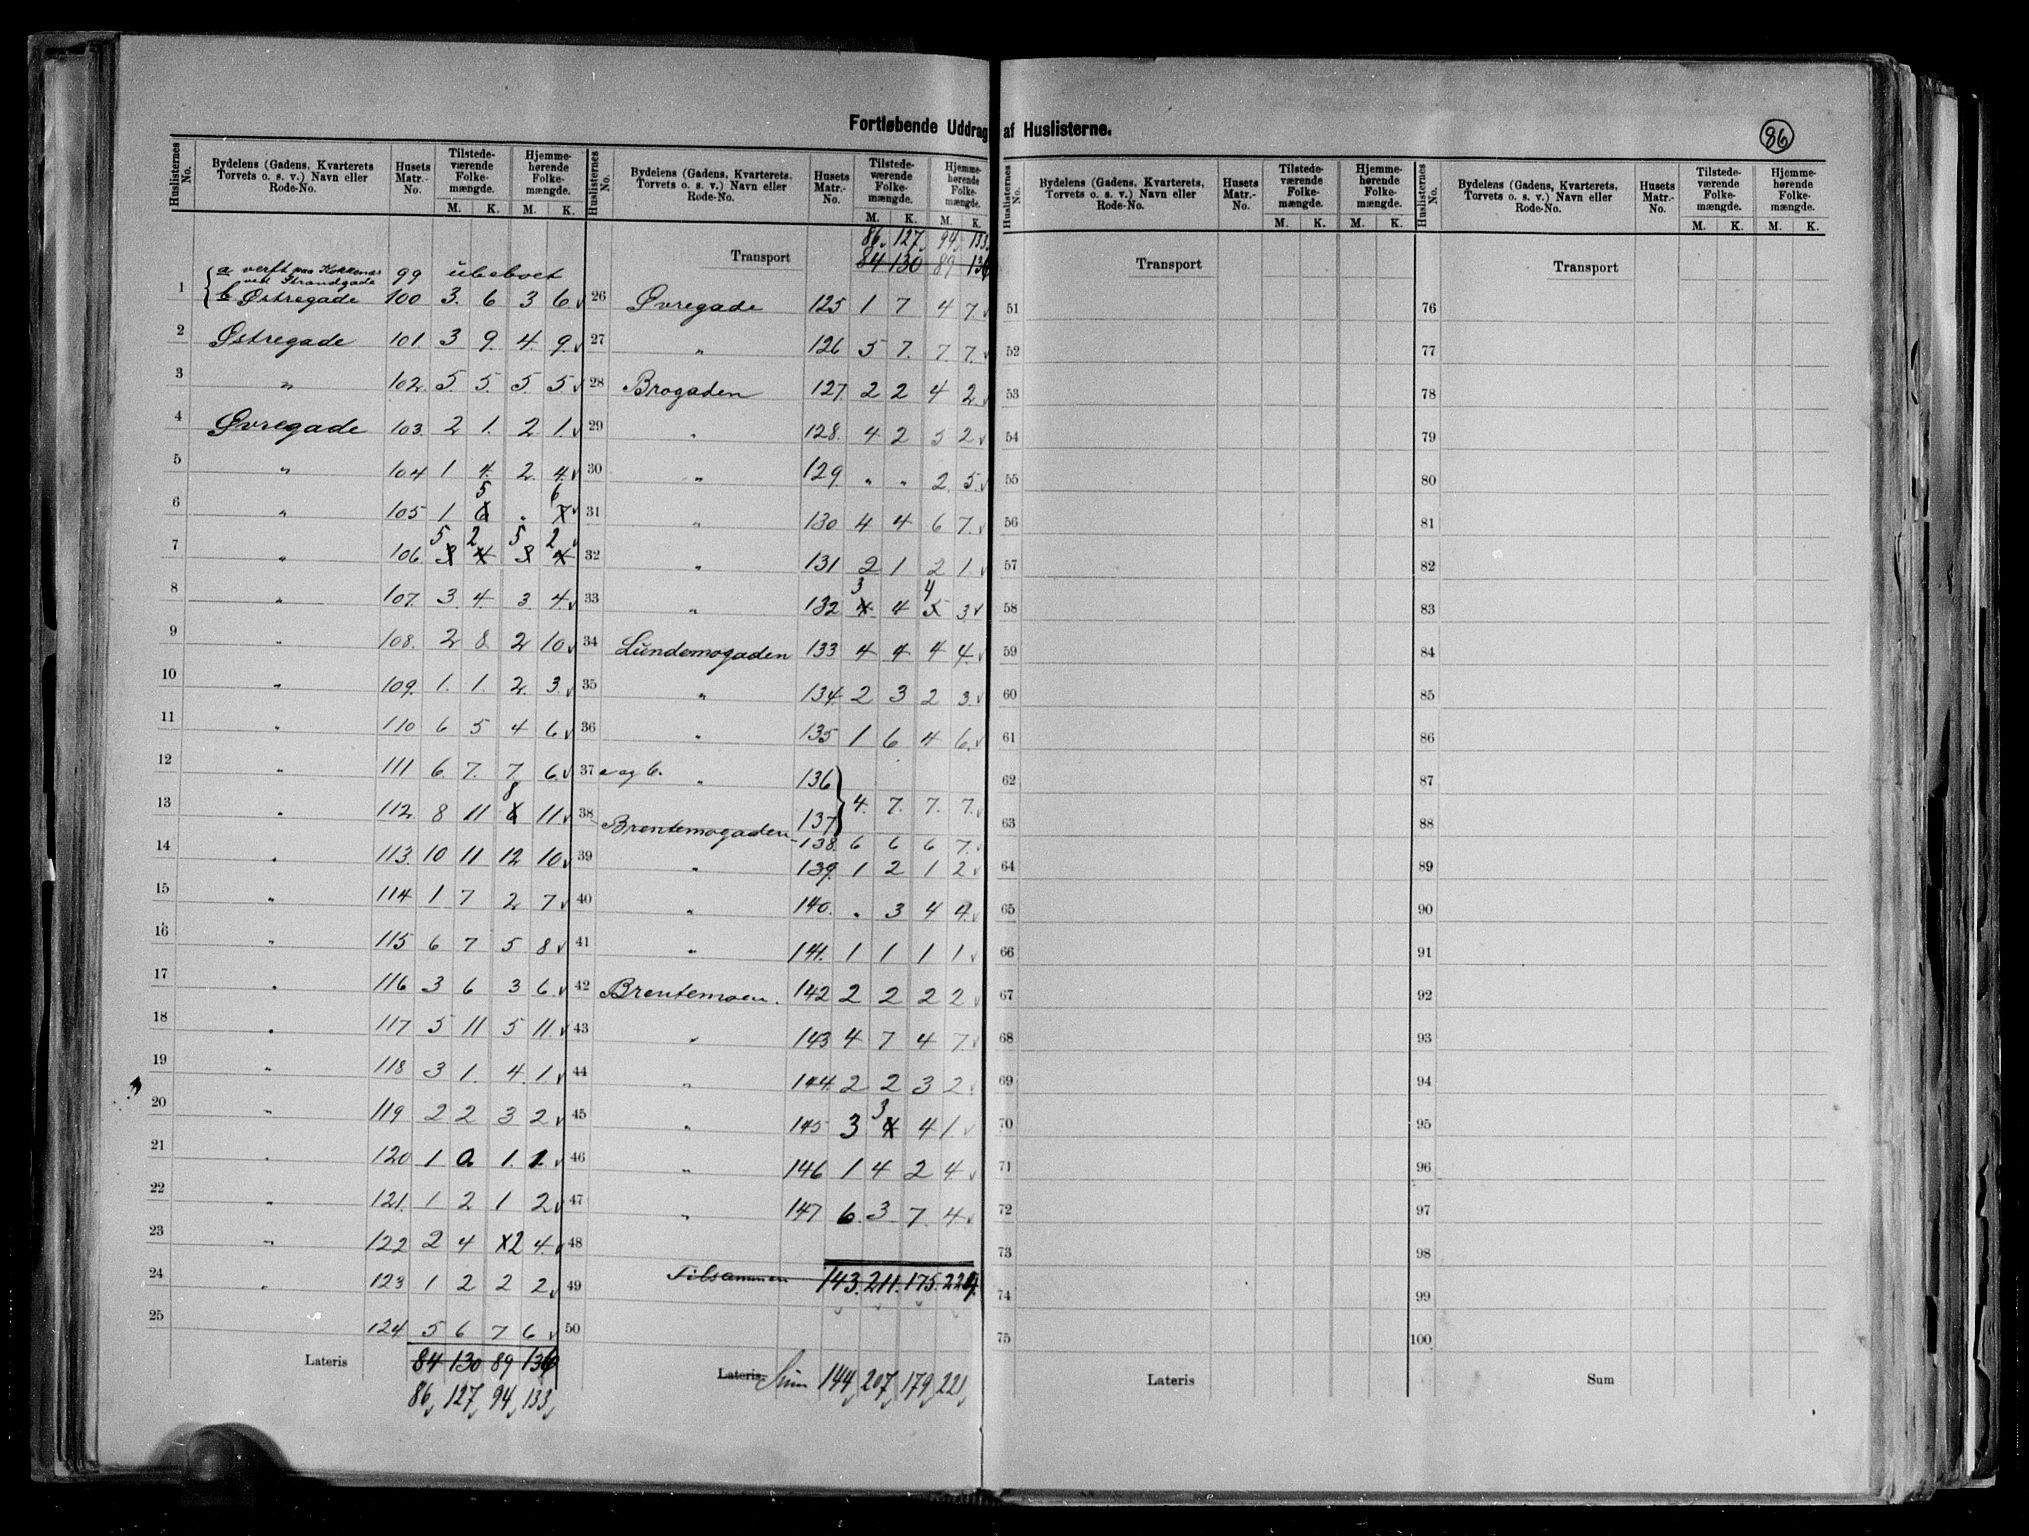 Fortløbende Uddrag af Huslisterne.
86
Huslisternes No. | Bydelens (Gadens, Kvarterets Torvets o. s. v.) Navn eller Rode-No. | Husets Matr.-No. | Tilstede-værende Folke-mængde. M. K. | Hjemme-hørende Folke-mængde. M. K.
1 a verft paa Kokkenæs ved Strandgade 99 ubeboet
b Østregade 100 3. 6 3 6
2 Østregade 101. 3 9. 4. 9.
3 " 102. 5. 5. 5. 5
4 Øvregade 103. 2 1. 2 1.
5 " 104 1 4. 2. 4.
6 " 105 1 6 5 . 7 6
7 " 106. 3 5 4 2 3 5 4 2
8 " 107. 3. 4. 3. 4.
9 " 108. 2 8. 2 10
10 " 109. 1. 1. 2. 3.
11 " 110 6 5 4 6
12 " 111 6. 7. 7. 6.
13 " 112. 8 11 6 8 11
14 " 113. 10 11 12 10
15 " 114 1 7 2 7
16 " 115 6 7 5 8
17 " 116 3 6 3 6.
18 " 117 5 11 5 11.
19 " 118 3 1. 4. 1.
20 " 119 2 2 3 2
21 " 120 1 0 1. 1
22 " 121. 1 2 1 2
23 " 122 2 4 2 4.
24 " 123 1 2 2 2
25 124 5 6 7 6
Lateris 84 130 89 136
86 127 94 133
Huslisternes No. | Bydelens (Gadens, Kvarterets, Torvets o. s. v.) Navn eller Rode-No. | Husets Matr.-No. | Tilstede-værende Folke-mængde. M. K. | Hjemme-hørende Folke-mængde. M. K.
86 127 94 133
Transport 84 130 89 136
26 Øvregade 125 1 7 4 7.
27 " 126 5 7. 7. 7.
28 Brogaden 127. 2 2 4 2.
29 " 128. 4 2 5 2
30 " 129. " " 2. 5.
31 " 130 4 4 6 7.
32 " 131 2 1 2 1.
33 " 132 4 3 4 5 4 3.
34 Lundemogaden 133 4 4 4 4.
35 " 134. 2 3 2 3.
36 " 135 1 6 4 6.
37 a og b. " 136
38 Brentemogaden 137 4. 7. 7. 7.
138. 6 6 6 7.
39 " 139. 1 2 1 2
40 " 140. " 3 4 4.
41 " 141. 1 1 1 1
42 Brentemoen. 142 2 2 2 2
43 " 143 4 7 4 7.
44 " 144. 2 2 3 2
45 " 145 3 4 3 4 1.
46 " 146 1 4 2 4
47 " 147 6. 3. 7. 4
48
49 Tilsammen 143. 211. 175. 224.
50
Lateris. Sum 144 207 179 221
Huslisternes No. | Bydelens (Gadens, Kvarterets, Torvets o. s. v.) Navn eller Rode-No. | Husets Matr.-No. | Tilstede-værende Folke-mængde. M. K. | Hjemme-hørende Folke-mængde. M. K.
Transport
51
52
53
54
55
56
57
58
59
60
61
62
63
64
65
66
67
68
69
70
71
72
73
74
75
Lateris
Huslisternes No. | Bydelens (Gadens, Kvarterets, Torvets o. s. v.) Navn eller Rode-No. | Husets Matr.-No. | Tilstede-værende Folke-mængde. M. K. | Hjemme-hørende Folke-mængde. M. K.
Transport
76
77
78
79
80
81
82
83
84
85
86
87
88
89
90
91
92
93
94
95
96
97
98
99
100
Sum